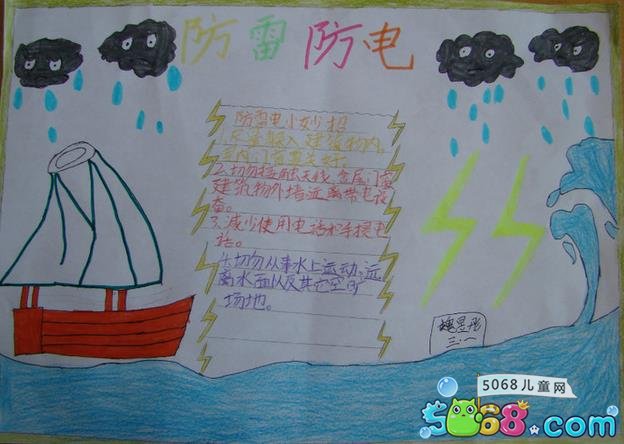 防雷防电
防雷电小妙招
内,门窗要关好。
2.切勿接触天线,金属门窗
建筑物外墙,远离带电设
备。
3.减少使用电话和手提电
话。
4.切勿从事水上运动,远
离水面以及其它空旷
场地。
三.一
5068儿童网
5068.com